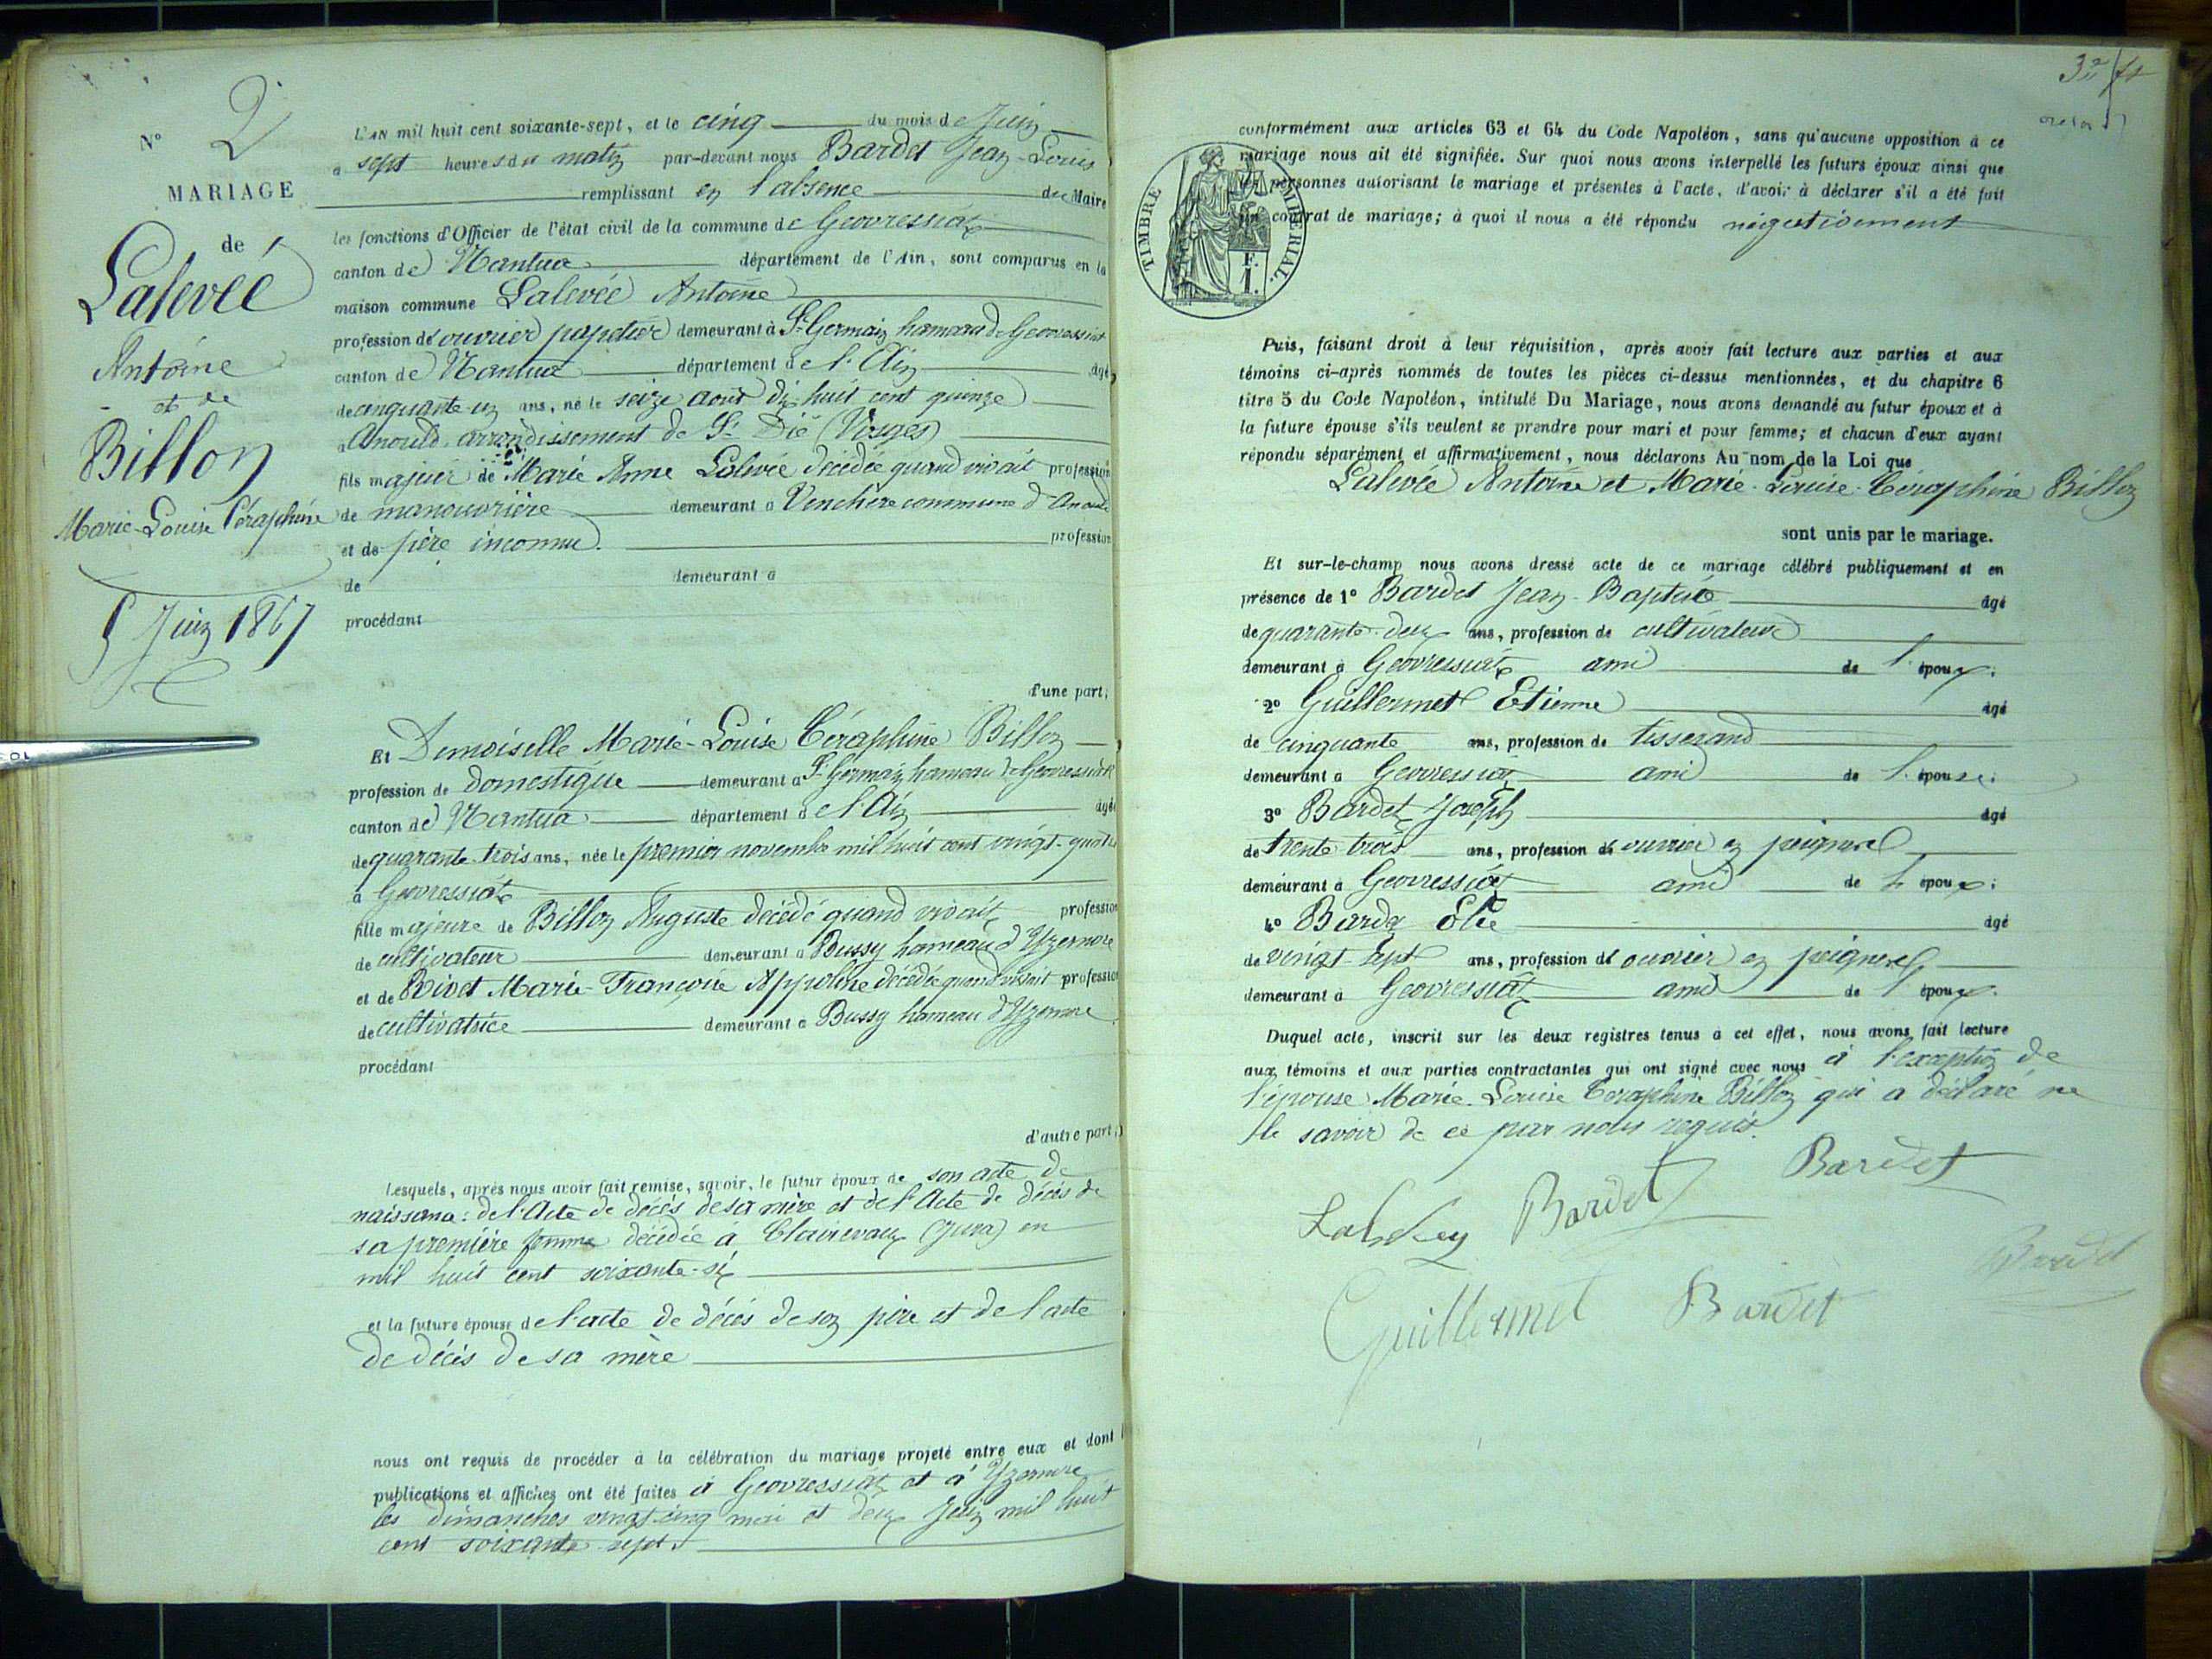 N° 2
MARIAGE
de
Lalevée
Antoine
et de
Billon
Marie-Louise Céraphine
5 Juin 1867
L'AN mil huit cent soixante-sept, et le cinq du mois de Juin
a sept heures du matin par-devant nous Bardet Jean-Louis
remplissant en l'absence du Maire
les fonctions d'Officier de l'état civil de la commune de Geovressiat
canton de Nantua département de l'Ain, sont comparus en la
maison commune Lalevée Antoine
profession de ouvrier papetier demeurant à St Germain hameau de Geovressiat
canton de Nantua département de l'Ain âgé
de cinquante un ans, né le seize aout dix huit cent quinze
a Anould arrondissement de St Dié (Vosges)
fils majeur de Marie Anne Lalevée décédée quand vivait profession
de manouvrière demeurant à Venchère commune d'Anould
et de père inconnu. profession
de demeurant à
procédant
d'une part,
Et Demoiselle Marie-Louise Céraphine Billon
profession de domestique demeurant à St Germain hameau de Geovressiat
canton de Nantua département de l'Ain âgée
de quarante-trois ans, née le premier novembre mil huit cent vingt-quatre
à Geovressiat
fille majeure de Billon Auguste décédé quand vivait profession
de cultivateur demeurant à Bussy hameau d'Yzernore
et de Rivet Marie-Françoise Appoline décédée quand vivait profession
de cultivatrice demeurant à Bussy hameau d'Yzernore
procédant
d'autre part,
Lesquels, après nous avoir fait remise, savoir, le futur époux de son acte de
naissance: de l'Acte de décès de sa mère et de l'Acte de décès de
sa première femme décédée à Clairevaux (Jura) en
mil huit cent soixante-six
et la future épouse de l'acte de décès de son père et de l'acte
de décès de sa mère
nous ont requis de procéder à la célébration du mariage projeté entre eux et dont
publications et affiches ont été faites à Geovressiat et à Yzernore
les dimanches vingt-cinq mai et deux Juin mil huit
cent soixante sept.
conformément aux articles 63 et 64 du Code Napoléon, sans qu'aucune opposition à ce
mariage nous ait été signifiée. Sur quoi nous avons interpellé les futurs époux ainsi que
les personnes autorisant le mariage et présentes à l'acte, d'avoir à déclarer s'il a été fait
un contrat de mariage; à quoi il nous a été répondu négativement
TIMBRE IMPERIAL.
F. 1.
Puis, faisant droit à leur réquisition, après avoir fait lecture aux parties et aux
témoins ci-après nommés de toutes les pièces ci-dessus mentionnées, et du chapitre 6
titre 5 du Code Napoléon, intitulé Du Mariage, nous avons demandé au futur époux et à
la future épouse s'ils veulent se prendre pour mari et pour femme; et chacun d'eux ayant
répondu séparément et affirmativement, nous déclarons Au nom de la Loi que
Lalevée Antoine et Marie-Louise-Céraphine Billon
sont unis par le mariage.
Et sur-le-champ nous avons dressé acte de ce mariage célébré publiquement et en
présence de 1° Bardet Jean-Baptiste âgé
de quarante-deux ans, profession de cultivateur
demeurant à Geovressiat ami de l'époux;
2° Guillermet Etienne âgé
de cinquante ans, profession de tisserand
demeurant à Geovressiat ami de l'épouse;
3° Bardet Joseph âgé
de trente-trois ans, profession de ouvrier en peignerel
demeurant à Geovressiat ami de l'époux;
4° Bardet Elie âgé
de vingt sept ans, profession de ouvrier en peignerel
demeurant à Geovressiat ami de l'époux.
Duquel acte, inscrit sur les deux registres tenus à cet effet, nous avons fait lecture
aux témoins et aux parties contractantes qui ont signé avec nous à l'exception de
l'épouse Marie-Louise Céraphine Billon qui a déclaré ne
le savoir de ce par nous requis.
Bardet
Bardet
Bardet
Guillermet Bardet